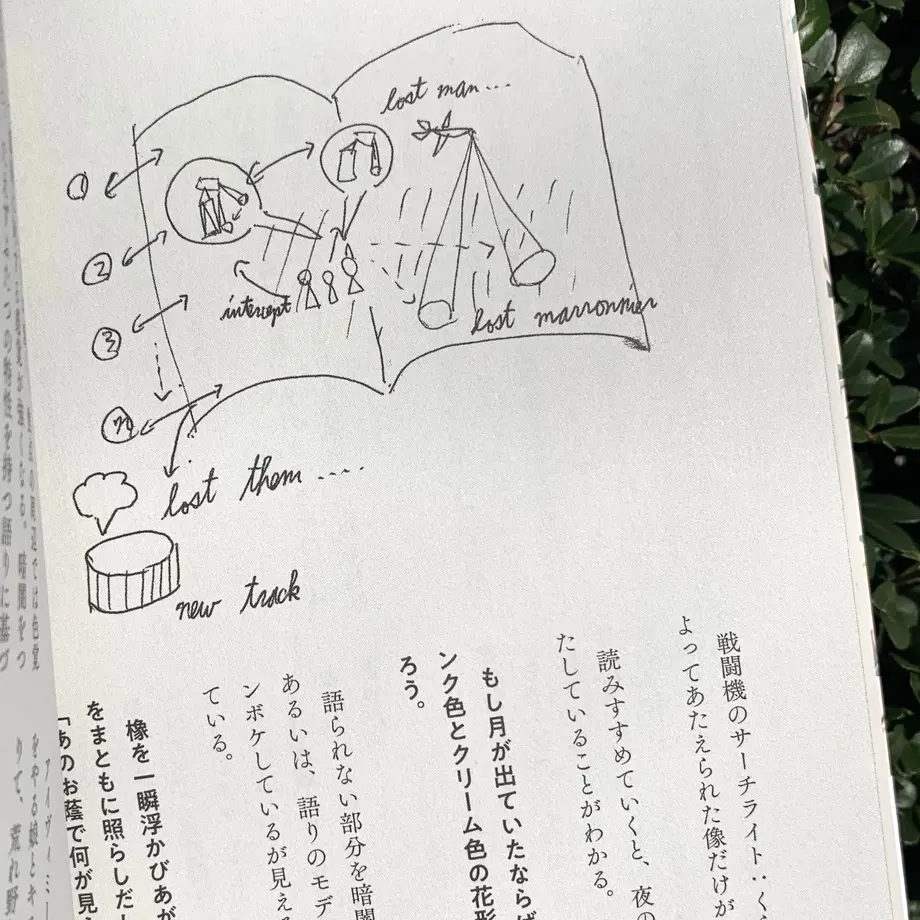 lost man...
①
②
③
ⓝ
intercept
lost marronnier
lost them ....
new track
戦闘機のサーチライト：く
よってあたえられた像だけが
読みすすめていくと、夜の
たしていることがわかる。
もし月が出ていたならば
ンク色とクリーム色の花形
ろう。
語られない部分を暗闇
あるいは、語りのモデ
ンボケしているが見える
ている。
橡を一瞬浮かびあが
をまともに照らしだし
「あのお蔭で何が見え
アイヴィミー
をやる娘とキ
りで、荒れ野
の周辺では色覚
覚が強くなる。暗闇をつ
つの特性を持つ語りに基づ